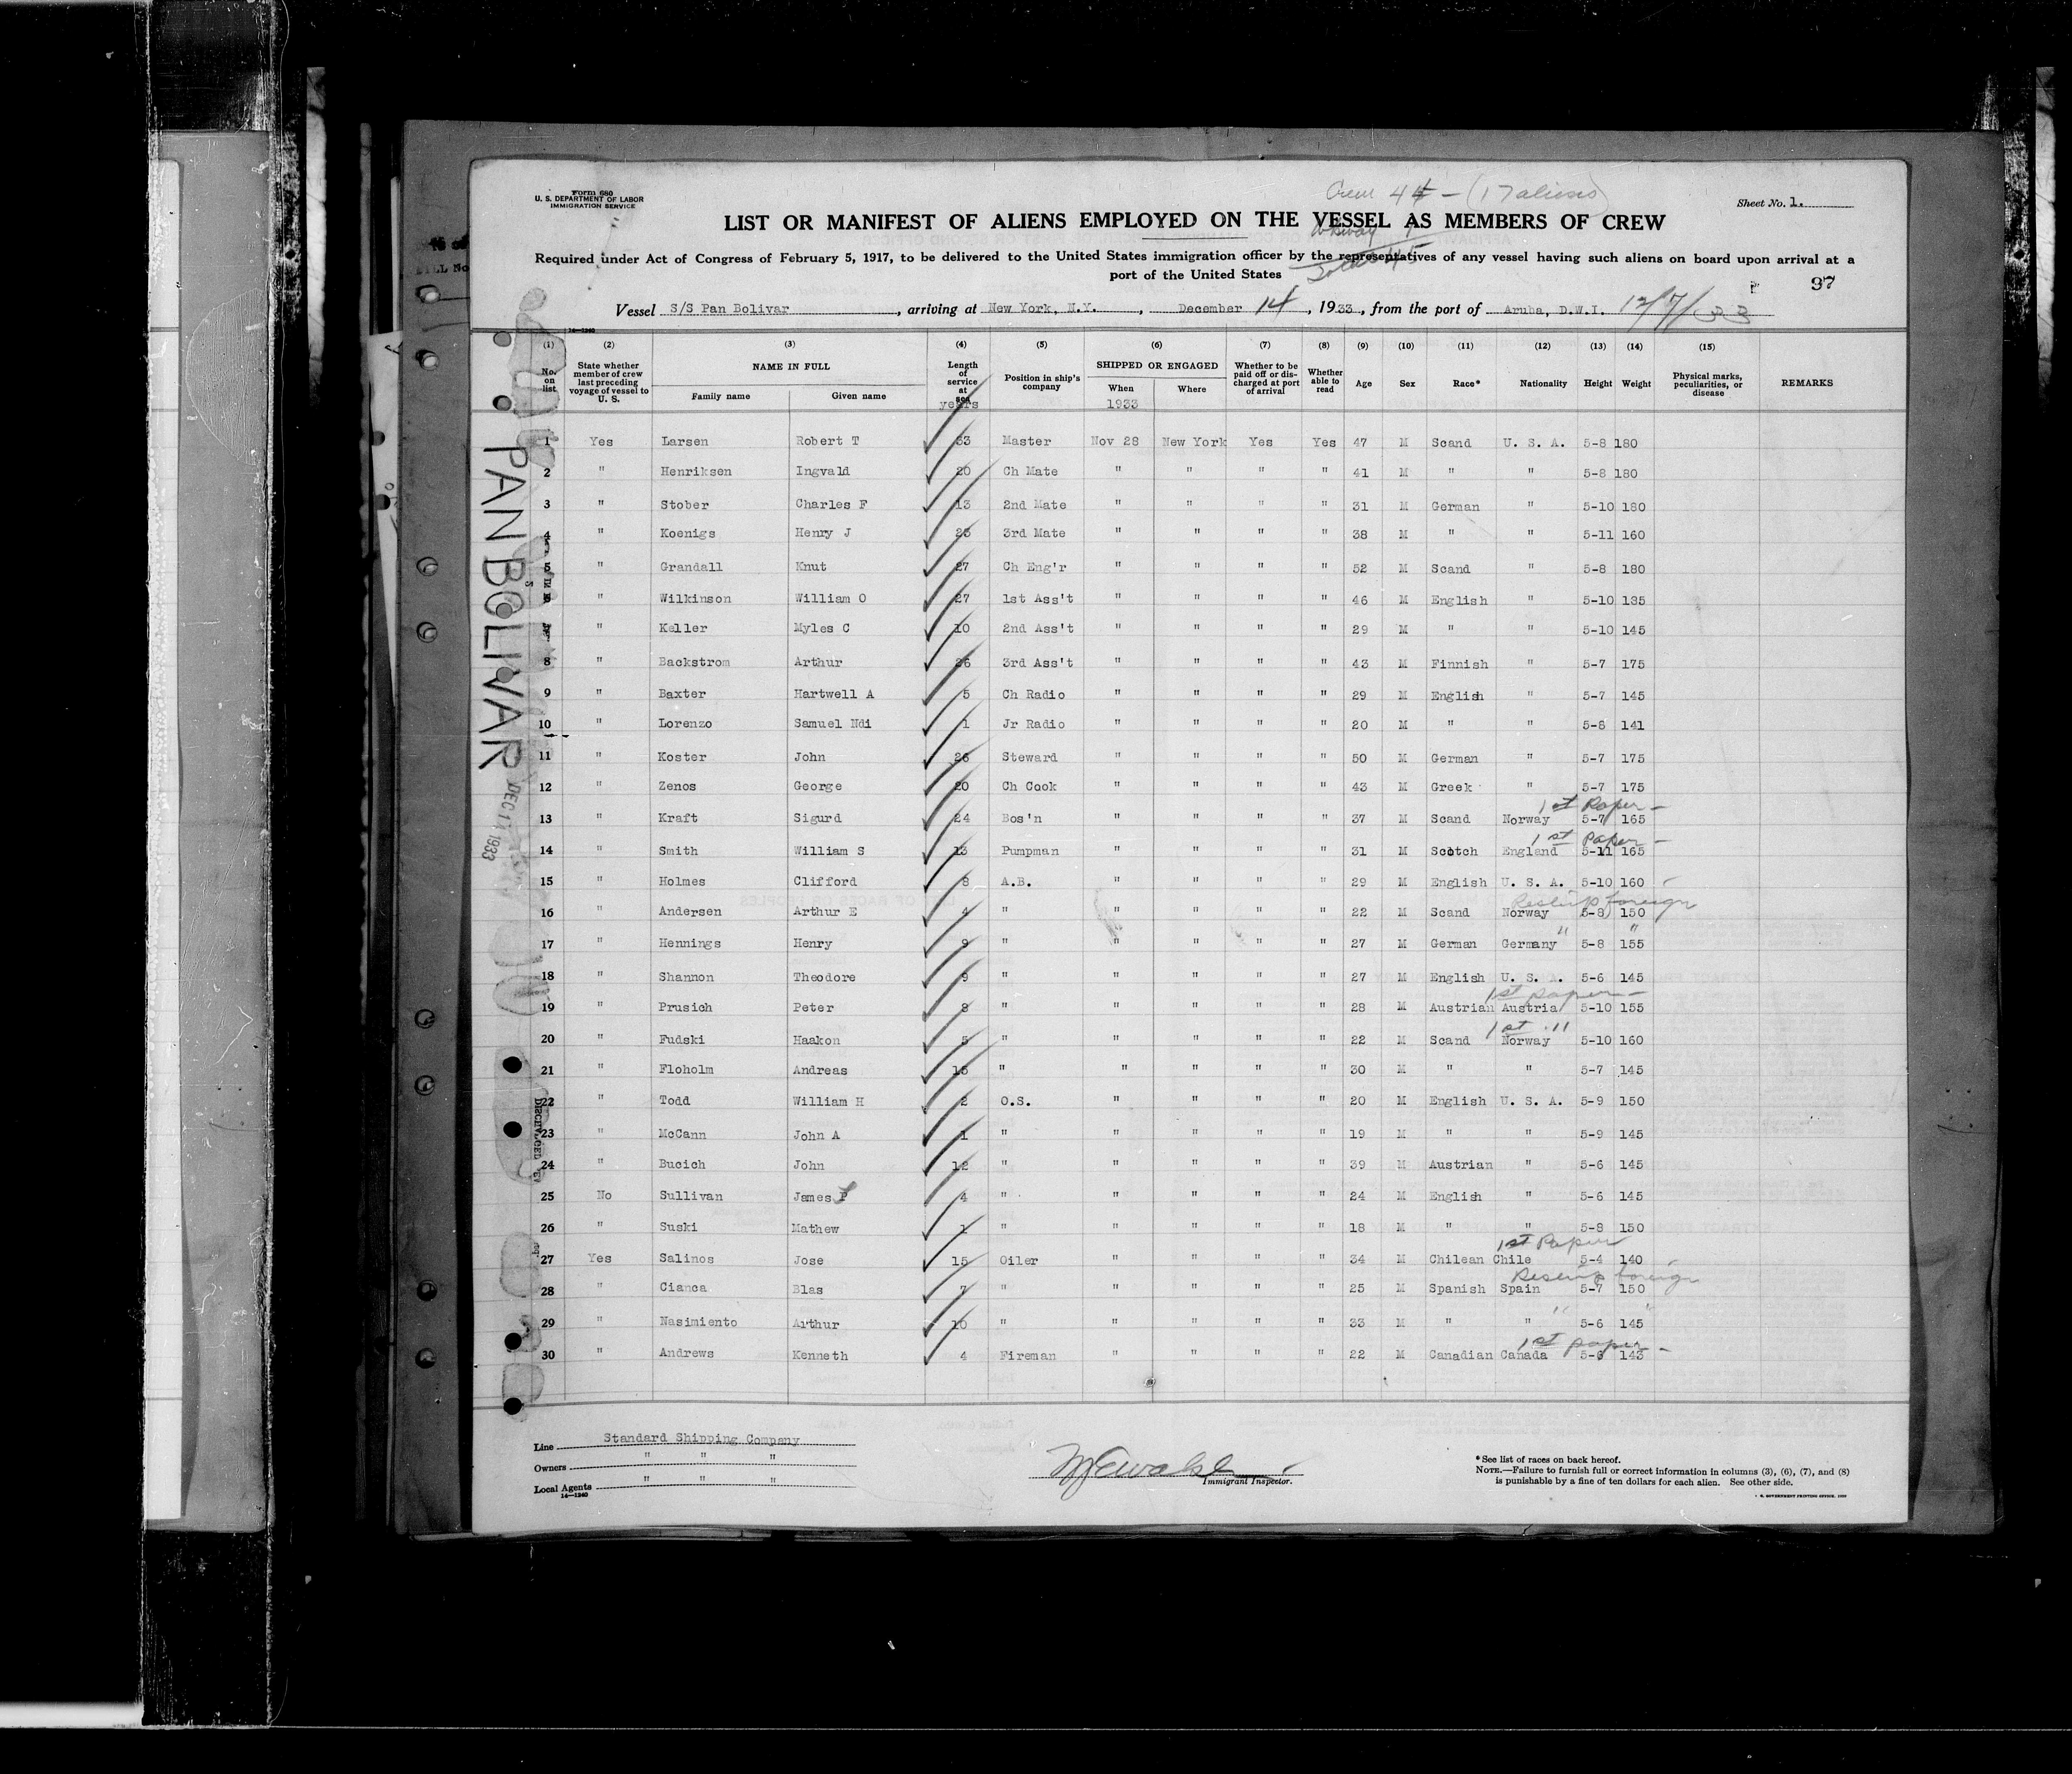 Form 680
U. S. DEPARTMENT OF LABOR
IMMIGRATION SERVICE
Crew 44 — (17 aliens)
Sheet No. 1.
LIST OR MANIFEST OF ALIENS EMPLOYED ON THE VESSEL AS MEMBERS OF CREW
Required under Act of Congress of February 5, 1917, to be delivered to the United States immigration officer by the representatives of any vessel having such aliens on board upon arrival at a
port of the United States
97
Vessel S/S Pan Bolivar, arriving at New York, N.Y., December 14, 1933, from the port of Aruba, D.W.I. 12/7/33
14—1240
(1) (2) (3) (4) (5) (6) (7) (8) (9) (10) (11) (12) (13) (14) (15)
No. on list State whether member of crew last preceding voyage of vessel to U. S. NAME IN FULL Family name Given name Length of service at sea years Position in ship's company SHIPPED OR ENGAGED When 1933 Where Whether to be paid off or discharged at port of arrival Whether able to read Age Sex Race* Nationality Height Weight Physical marks, peculiarities, or disease REMARKS
1 Yes Larsen Robert T 33 Master Nov 28 New York Yes Yes 47 M Scand U. S. A. 5-8 180
2 " Henriksen Ingvald 20 Ch Mate " " " " 41 M " " 5-8 180
3 " Stober Charles F 13 2nd Mate " " " " 31 M German " 5-10 180
4 " Koenigs Henry J 23 3rd Mate " " " " 38 M " " 5-11 160
5 " Grandall Knut 27 Ch Eng'r " " " " 52 M Scand " 5-8 180
" Wilkinson William O 27 1st Ass't " " " " 46 M English " 5-10 135
" Keller Myles C 10 2nd Ass't " " " " 29 M " " 5-10 145
8 " Backstrom Arthur 26 3rd Ass't " " " " 43 M Finnish " 5-7 175
9 " Baxter Hartwell A 5 Ch Radio " " " " 29 M English " 5-7 145
10 " Lorenzo Samuel Ndi 1 Jr Radio " " " " 20 M " " 5-8 141
11 " Koster John 26 Steward " " " " 50 M German " 5-7 175
12 " Zenos George 20 Ch Cook " " " " 43 M Greek " 5-7 175
1st Paper —
13 " Kraft Sigurd 24 Bos'n " " " " 37 M Scand Norway 5-7 165
1st Paper —
14 " Smith William S 13 Pumpman " " " " 31 M Scotch England 5-11 165
15 " Holmes Clifford 8 A.B. " " " " 29 M English U. S. A. 5-10 160
Reship foreign
16 " Andersen Arthur E 4 " " " " " 22 M Scand Norway 5-8 150
" "
17 " Hennings Henry 9 " " " " " 27 M German Germany 5-8 155
18 " Shannon Theodore 9 " " " " " 27 M English U. S. A. 5-6 145
1st paper —
19 " Prusich Peter 8 " " " " " 28 M Austrian Austria 5-10 155
1st "
20 " Fudski Haakon 5 " " " " " 22 M Scand Norway 5-10 160
21 " Floholm Andreas 15 " " " " " 30 M " " 5-7 145
22 " Todd William H 2 O.S. " " " " 20 M English U. S. A. 5-9 150
23 " McCann John A 1 " " " " " 19 M " " 5-9 145
24 " Bucich John 12 " " " " " 39 M Austrian " 5-6 145
25 No Sullivan James P 4 " " " " " 24 M English " 5-6 145
26 " Suski Mathew 1 " " " " " 18 M " " 5-8 150
1st Paper
27 Yes Salinos Jose 15 Oiler " " " " 34 M Chilean Chile 5-4 140
Reship foreign
28 " Cianca Blas 7 " " " " " 25 M Spanish Spain 5-7 150
" "
29 " Nasimiento Arthur 10 " " " " " 33 M " " 5-6 145
1st paper —
30 " Andrews Kenneth 4 Fireman " " " " 22 M Canadian Canada 5-6 143
PAN BOLIVAR
DEC 14 1933
Line Standard Shipping Company
Owners " " "
Local Agents " " "
14—1240
Immigrant Inspector.
* See list of races on back hereof.
NOTE.—Failure to furnish full or correct information in columns (3), (6), (7), and (8)
is punishable by a fine of ten dollars for each alien. See other side.